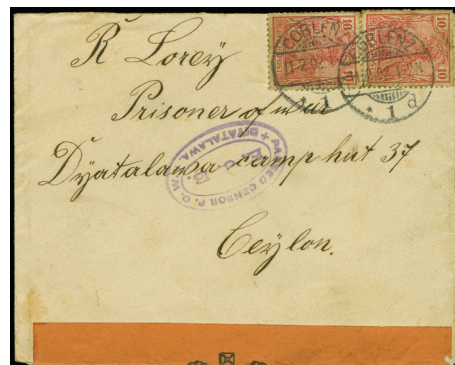 10 10
COBLENZ COBLENZ
* 1 d * 1 d
R Lorey
Prisoner of war
Dyatalawa camp hut 37
Ceylon.
PASSED CENSOR P. O. W. DIYATALAWA.